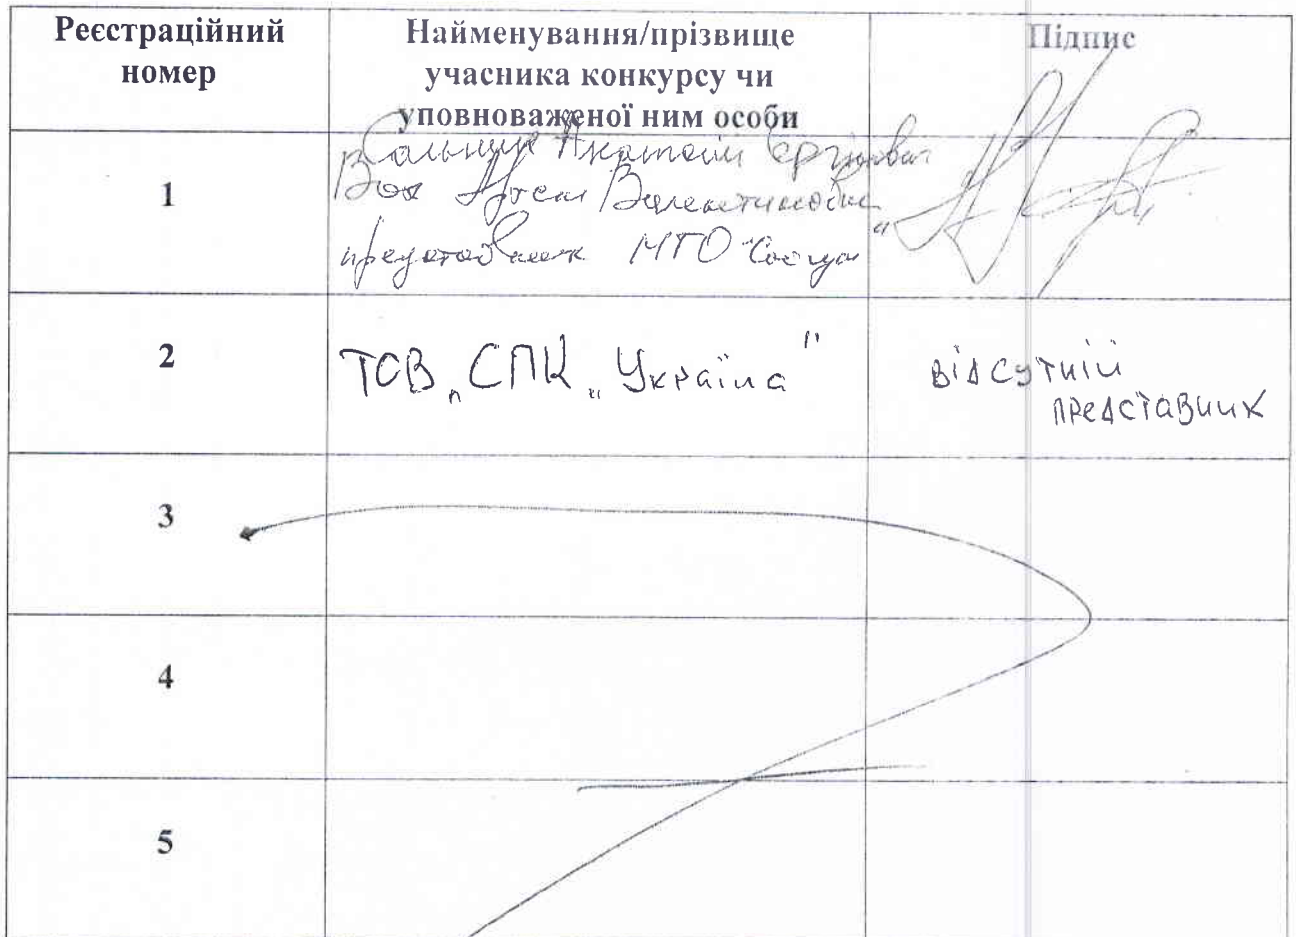 Реєстраційний номер
Найменування/прізвище учасника конкурсу чи уповноваженої ним особи
Підпис
1
Анатолій
Валентинович
представник МГО
2
ТОВ „СПК „Україна"
відсутній
представник
3
4
5